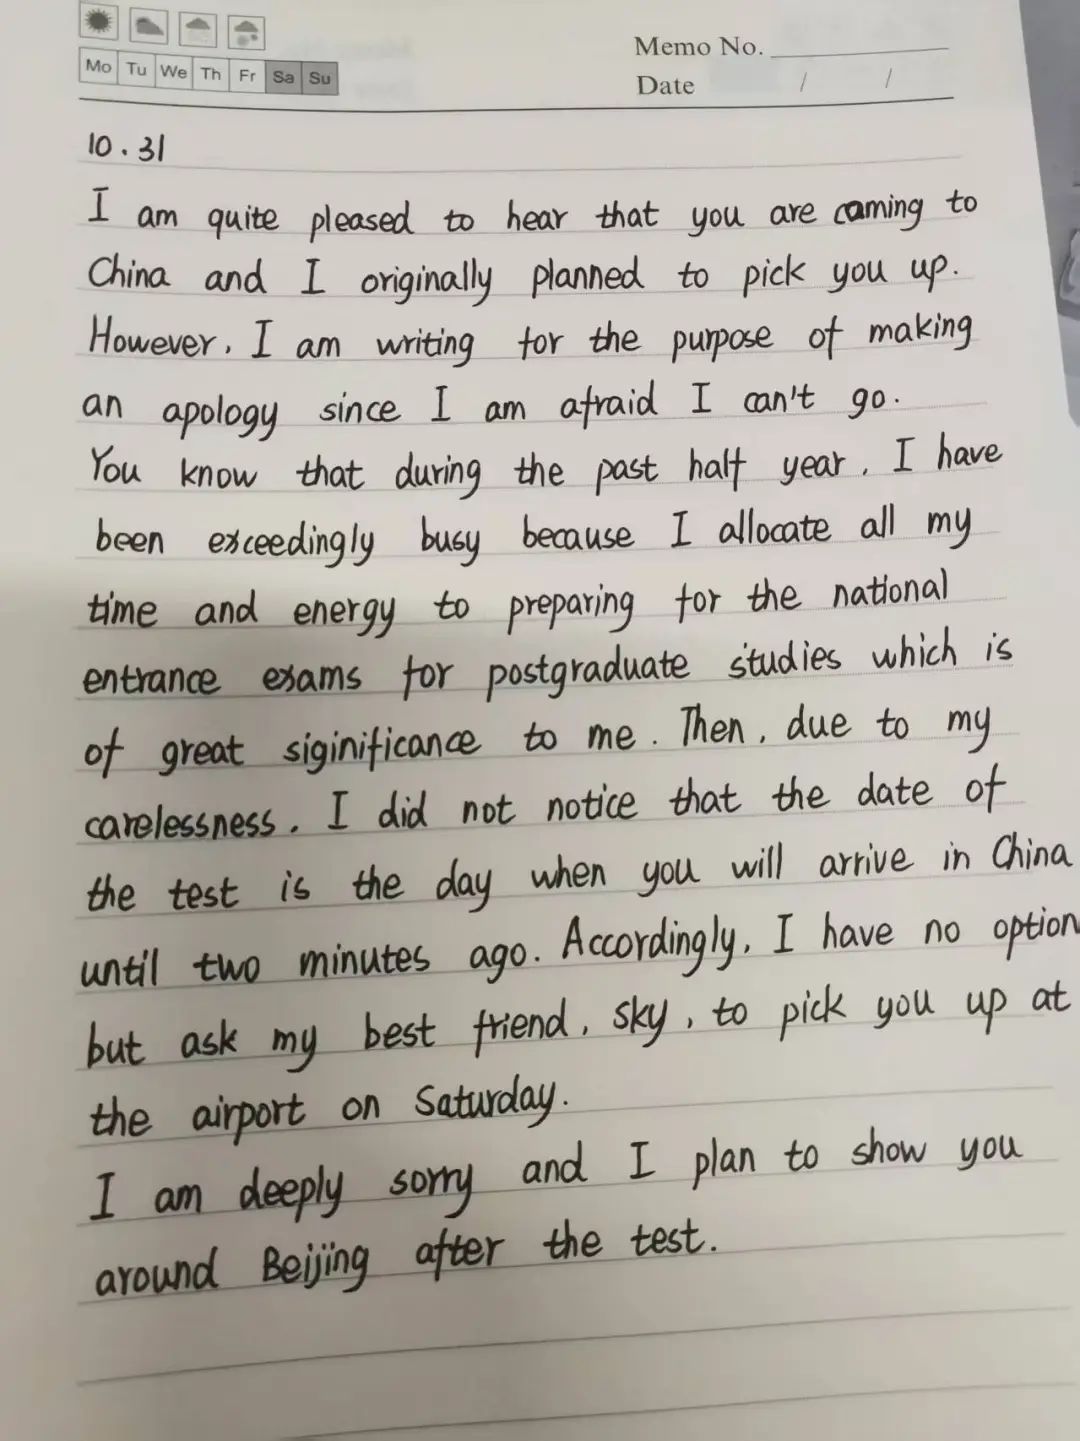 Mo Tu We Th Fr Sa Su
Memo No.
Date / /
10.31
I am quite pleased to hear that you are coming to
China and I originally planned to pick you up.
However, I am writing for the purpose of making
an apology since I am afraid I can't go.
You know that during the past half year, I have
been exceedingly busy because I allocate all my
time and energy to preparing for the national
entrance exams for postgraduate studies which is
of great siginificance to me. Then, due to my
carelessness, I did not notice that the date of
the test is the day when you will arrive in China
until two minutes ago. Accordingly, I have no option
but ask my best friend, sky, to pick you up at
the airport on Saturday.
I am deeply sorry and I plan to show you
around Beijing after the test.